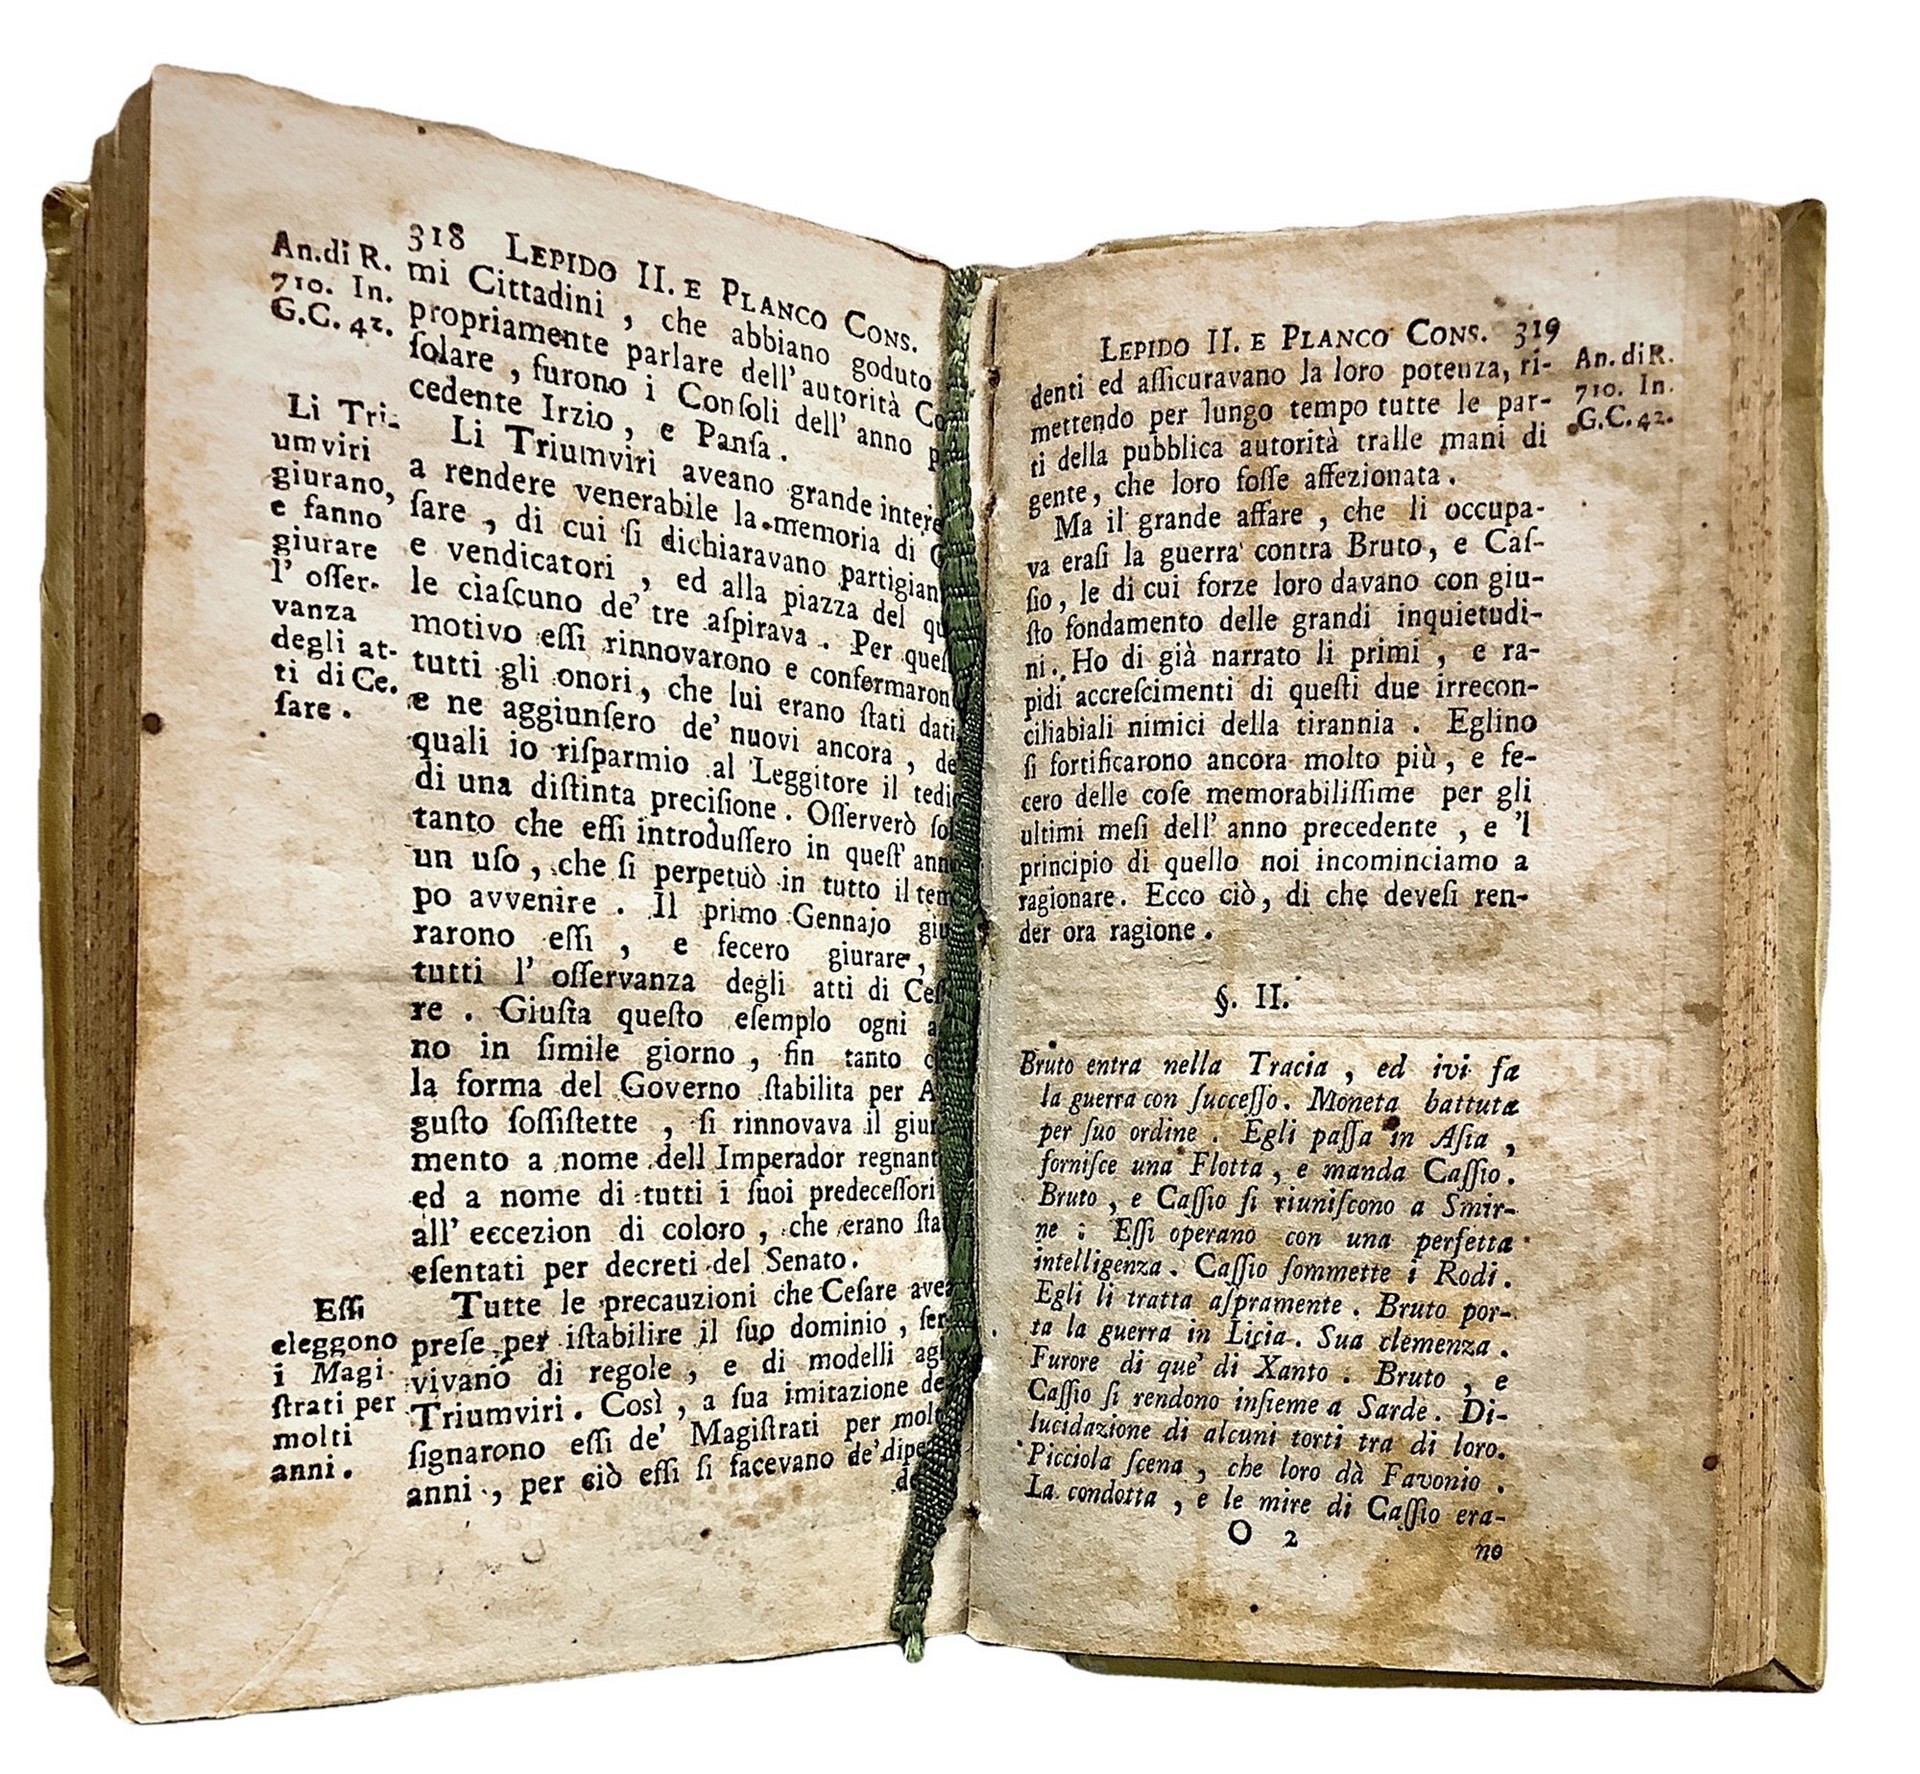 318 LEPIDO II. E PLANCO CONS.
An. di R.
710. In.
G.C. 42.
mi Cittadini , che abbiano goduto
propriamente parlare dell' autorità Co
ſolare , furono i Conſoli dell' anno p
cedente Irzio , e Panſa .
Li Tri-
umviri
giurano,
e fanno
giurare
l' oſſer-
vanza
degli at-
ti di Ce-
ſare .
Li Triumviri aveano grande intere
a rendere venerabile la memoria di C
ſare , di cui ſi dichiaravano partigian
e vendicatori , ed alla piazza del qu
le ciaſcuno de' tre aſpirava . Per queſ
motivo eſſi rinnovarono e confermaron
tutti gli onori , che lui erano ſtati dati
e ne aggiunſero de' nuovi ancora , de
quali io riſparmio al Leggitore il tedi
di una diſtinta preciſione . Oſſerverò ſol
tanto che eſſi introduſſero in queſt' ann
un uſo , che ſi perpetuò in tutto il tem
po avvenire . Il primo Gennajo giu
rarono eſſi , e fecero giurare ,
tutti l' oſſervanza degli atti di Ceſ
re . Giuſta queſto eſemplo ogni a
no in ſimile giorno , fin tanto c
la forma del Governo ſtabilita per A
guſto ſoſſiſtette , ſi rinnovava il giur
mento a nome dell Imperador regnant
ed a nome di tutti i ſuoi predeceſſori
all' eccezion di coloro , che erano ſta
eſentati per decreti del Senato.
Eſſi
eleggono
i Magi-
ſtrati per
molti
anni .
Tutte le precauzioni che Ceſare avea
preſe per iſtabilire il ſuo dominio , ſer-
vivano di regole , e di modelli agl
Triumviri . Così , a ſua imitazione de
ſignarono eſſi de' Magiſtrati per molt
anni , per ciò eſſi ſi facevano de' dipe
de
LEPIDO II. E PLANCO CONS. 319
An. di R.
710. In.
G.C. 42.
denti ed aſſicuravano la loro potenza, ri-
mettendo per lungo tempo tutte le par-
ti della pubblica autorità tralle mani di
gente , che loro foſſe affezionata .
Ma il grande affare , che li occupa-
va eraſi la guerra contra Bruto , e Caſ-
ſio , le di cui forze loro davano con giu-
ſto fondamento delle grandi inquietudi-
ni . Ho di già narrato li primi , e ra-
pidi accreſcimenti di queſti due irrecon-
ciliabiali nimici della tirannia . Eglino
ſi fortificarono ancora molto più , e fe-
cero delle coſe memorabiliſſime per gli
ultimi meſi dell' anno precedente , e 'l
principio di quello noi incominciamo a
ragionare. Ecco ciò , di che deveſi ren-
der ora ragione .
§. II.
Bruto entra nella Tracia , ed ivi fa
la guerra con ſucceſſo. Moneta battuta
per ſuo ordine . Egli paſſa in Aſia ,
forniſce una Flotta , e manda Caſſio .
Bruto , e Caſſio ſi riuniſcono a Smir-
ne : Eſſi operano con una perfetta
intelligenza . Caſſio ſommette i Rodi .
Egli li tratta aſpramente . Bruto por-
ta la guerra in Licia . Sua clemenza .
Furore di que' di Xanto . Bruto , e
Caſſio ſi rendono inſieme a Sarde . Di-
lucidazione di alcuni torti tra di loro.
Picciola ſcena , che loro dà Favonio .
La condotta , e le mire di Caſſio era-
O 2
no